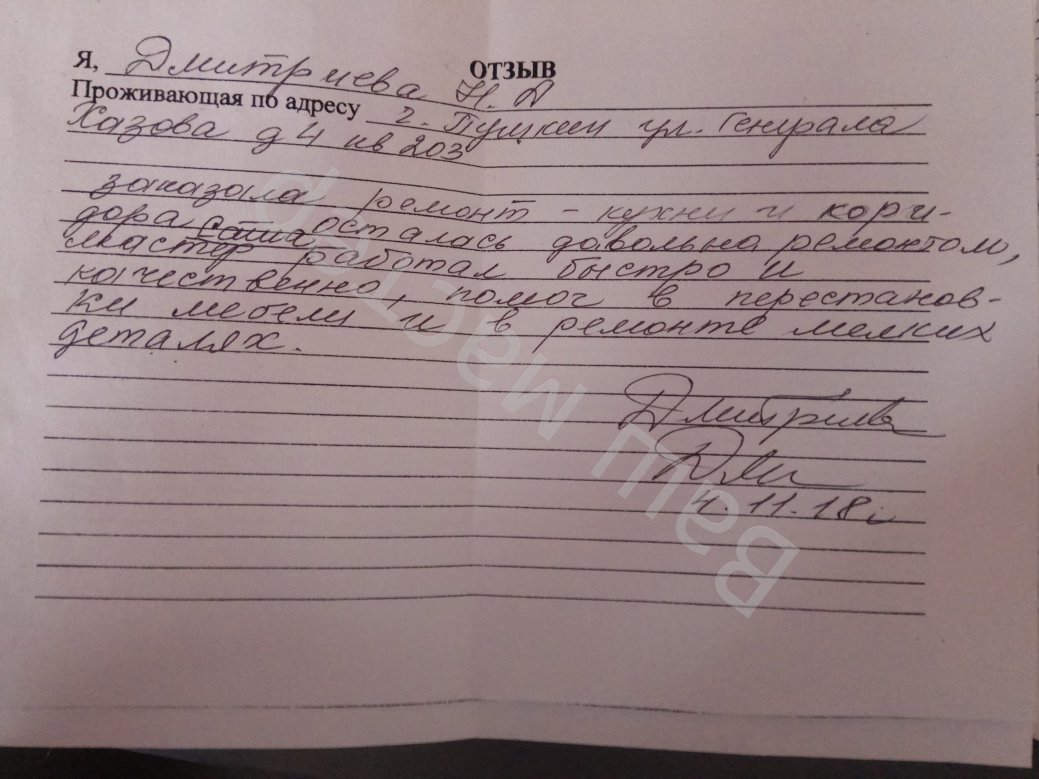 ОТЗЫВ
Я, Дмитриева Н. Д
Проживающая по адресу г. Пушкин ул. Генерала
Хазова д 4 кв 203
заказала ремонт - кухни и кори-
дора осталась довольна ремонтом,
мастер Саша работал быстро и
качественно, помог в перестанов-
ки мебели и в ремонте мелких
деталях.
Дмитриева
4.11.18г
Ваш мастер